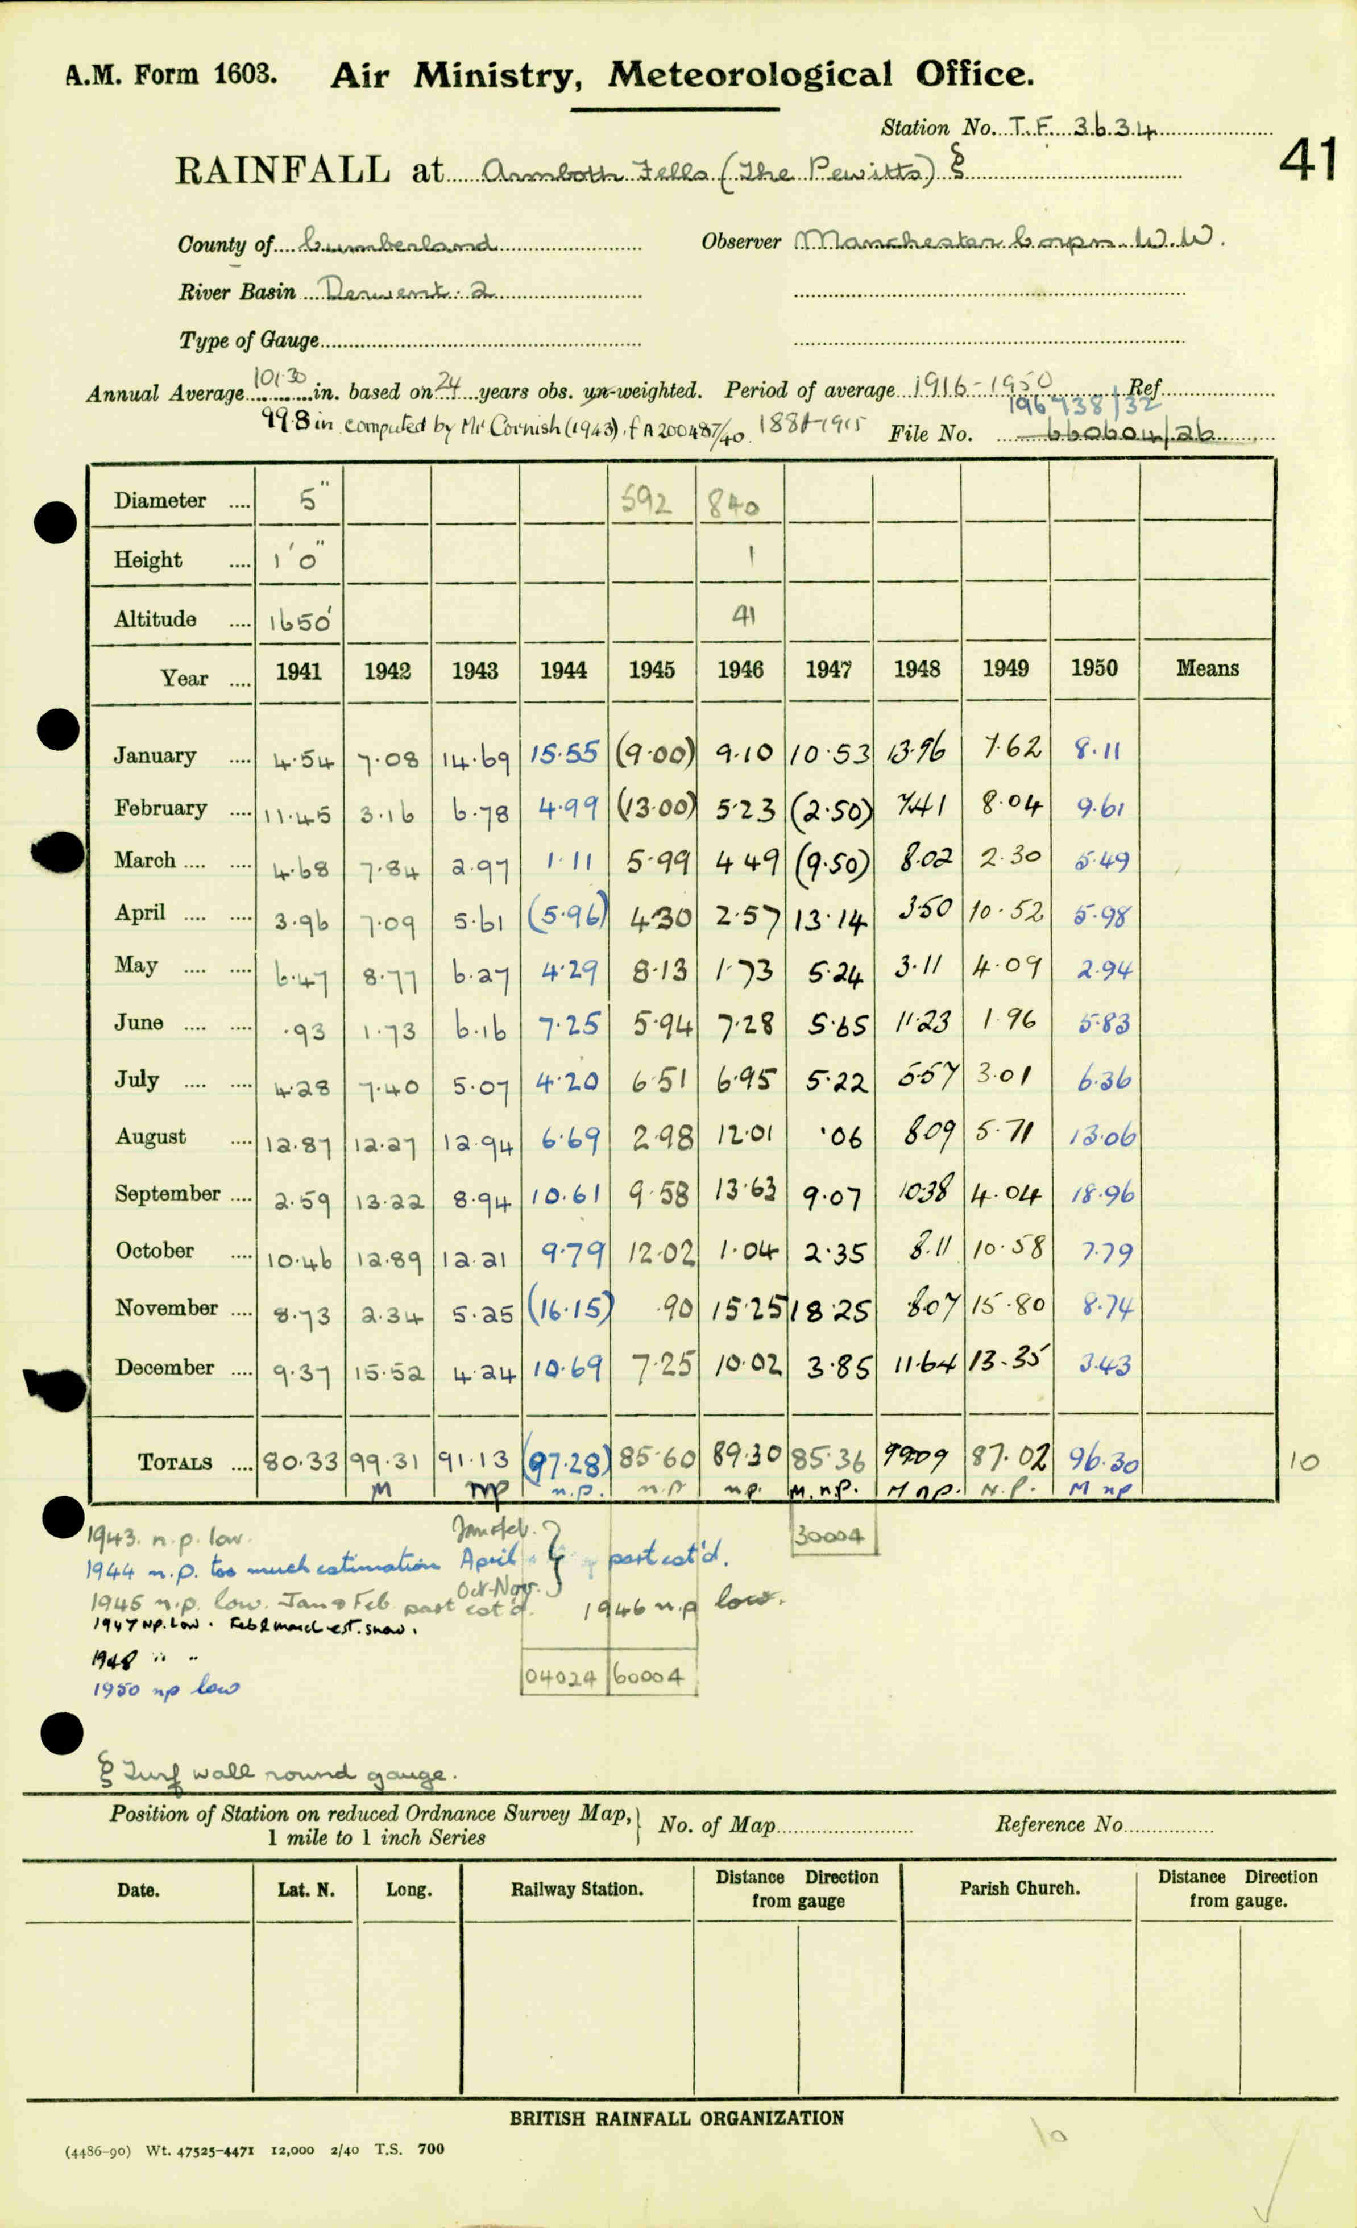 A.M. Form 1603. Air Ministry, Meteorological Office.
Station No. T.F. 3634
41
RAINFALL at Armboth Fells (The Pewitts) §
County of Cumberland Observer Manchester Corpn. W.W.
River Basin Derwent. 2
Type of Gauge
Annual Average 101·30 in. based on 24 years obs. un-weighted. Period of average 1916-1950 Ref.
99.8 in computed by Mr Cornish (1943). f A200487/40. 1881-1915 File No. 660604/26
196738/32
Diameter .... 5" 592 840
Height .... 1'0" 1
Altitude .... 1650' 41
Year .... 1941 1942 1943 1944 1945 1946 1947 1948 1949 1950 Means
January .... 4.54 7.08 14.69 15.55 (9.00) 9.10 10.53 13.96 7.62 8.11
February .... 11.45 3.16 6.78 4.99 (13.00) 5.23 (2.50) 7.41 8.04 9.61
March .... .... 4.68 7.84 2.97 1.11 5.99 4 49 (9.50) 8.02 2.30 5.49
April .... .... 3.96 7.09 5.61 (5.96) 4.30 2.57 13.14 3.50 10.52 5.98
May .... .... 6.47 8.77 6.27 4.29 8.13 1.73 5.24 3.11 4.09 2.94
June .... .... .93 1.73 6.16 7.25 5.94 7.28 5.65 11.23 1.96 5.83
July .... .... 4.28 7.40 5.07 4.20 6.51 6.95 5.22 5.57 3.01 6.36
August .... 12.87 12.27 12.94 6.69 2.98 12.01 .06 8.09 5.71 13.06
September .... 2.59 13.22 8.94 10.61 9.58 13.63 9.07 10.38 4.04 18.96
October .... 10.46 12.89 12.21 9.79 12.02 1.04 2.35 8.11 10.58 7.79
November .... 8.73 2.34 5.25 (16.15) .90 15.25 18.25 8.07 15.80 8.74
December .... 9.37 15.52 4.24 10.69 7.25 10.02 3.85 11.64 13.35 3.43
TOTALS .... 80.33 99.31 91.13 (97.28) 85.60 89.30 85.36 99.09 87.02 96.30 10
M np n.p. n.p n.p. M. n.p. M n.p. N.P. M np
1943. n.p. low. Jan & Feb. 30004
1944 n.p. too much estimation April } part est'd.
Oct-Nov.
1945 n.p. low. Jan & Feb part est'd. 1946 n.p low.
1947 NP. Low. Feb & March est. snow.
1948 " "
04024 60004
1950 np low
§ Turf wall round gauge.
Position of Station on reduced Ordnance Survey Map, } No. of Map Reference No.
1 mile to 1 inch Series
Date. Lat. N. Long. Railway Station. Distance Direction from gauge Parish Church. Distance Direction from gauge.
BRITISH RAINFALL ORGANIZATION
(4486-90) Wt. 47525-4471 12,000 2/40 T.S. 700
10